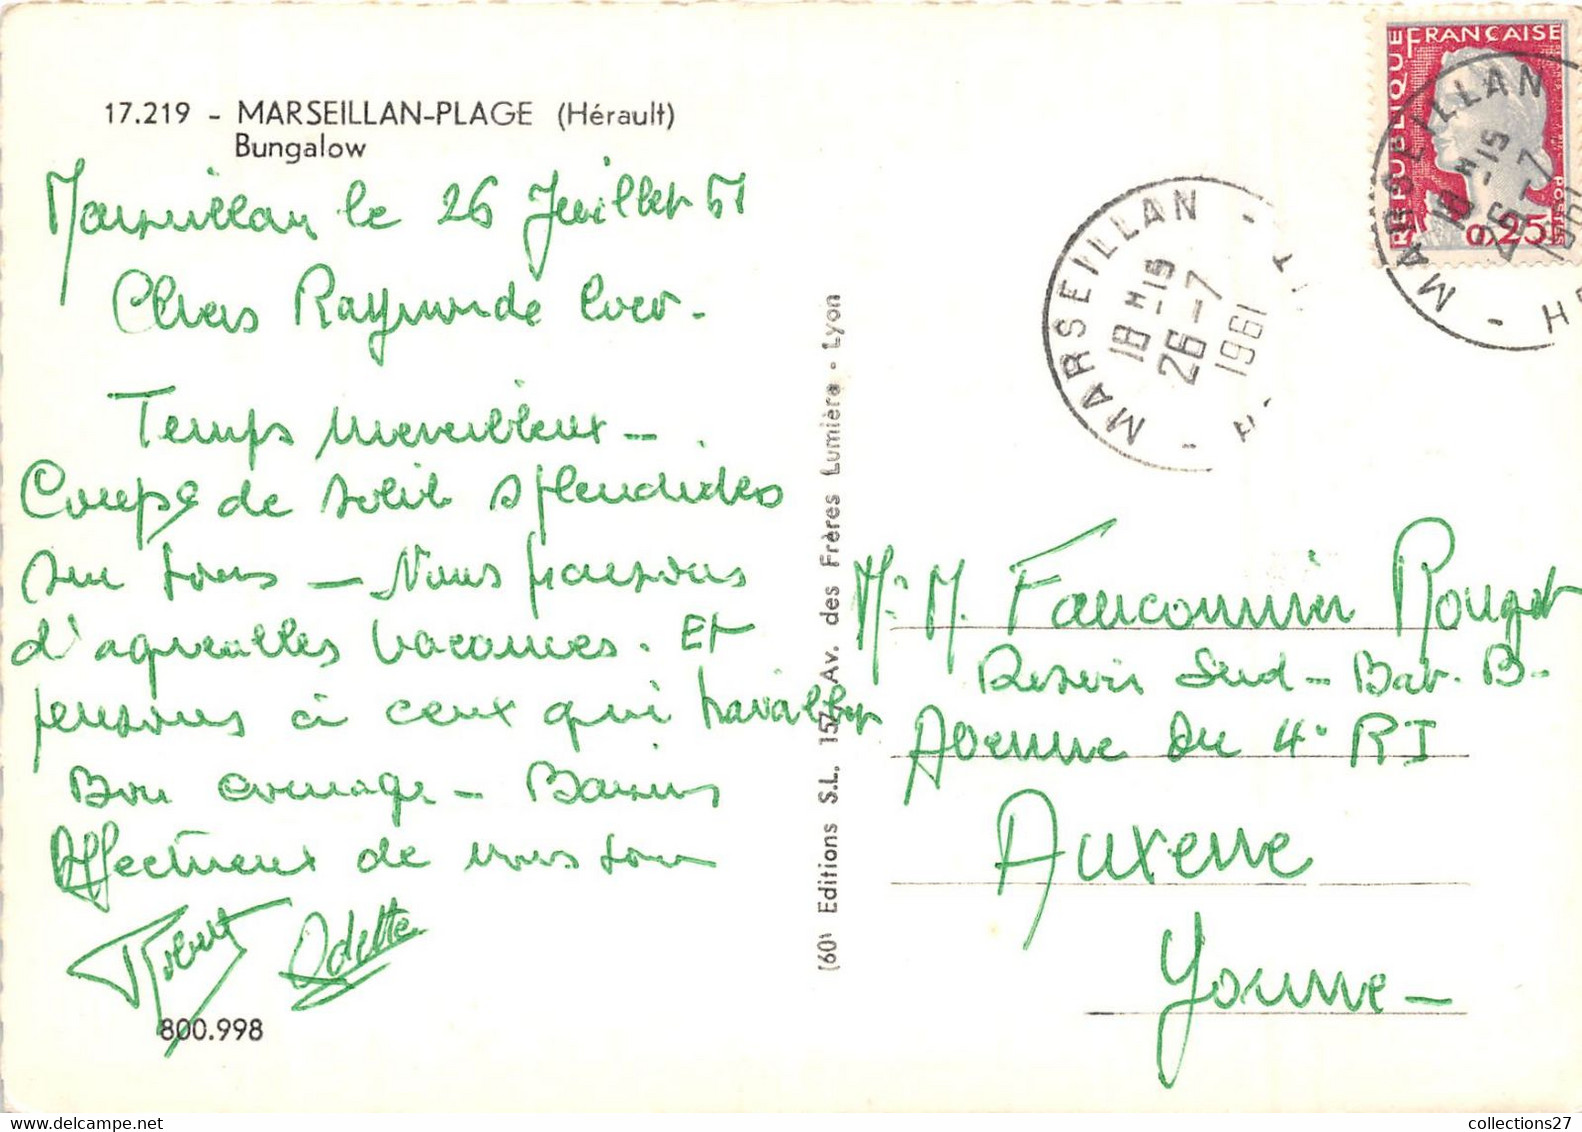 17.219 - MARSEILLAN-PLAGE (Hérault)
Bungalow
Marseillan le 26 Juillet 61
Chers Raymonde
Temps merveilleux -
Coups de soleil splendides
sur tous - Nous passons
d'agréables vacances. Et
pensons à ceux qui travaillent
Bon courage - Baisers
Affectueux de nous tous
Robert Odette
800.998
(60) Editions S.L. 157, Av. des Frères Lumière - Lyon
REPUBLIQUE FRANÇAISE
POSTES
0,25F
MARSEILLAN - HE
18 H 15
26 - 7
1961
MARSEILLAN - H
18 H 15
26 - 7
1961
Mr M. Fauconnier Rouget
Sud - Bat. B -
Avenue du 4e RI
Auxerre
Yonne -
collections27